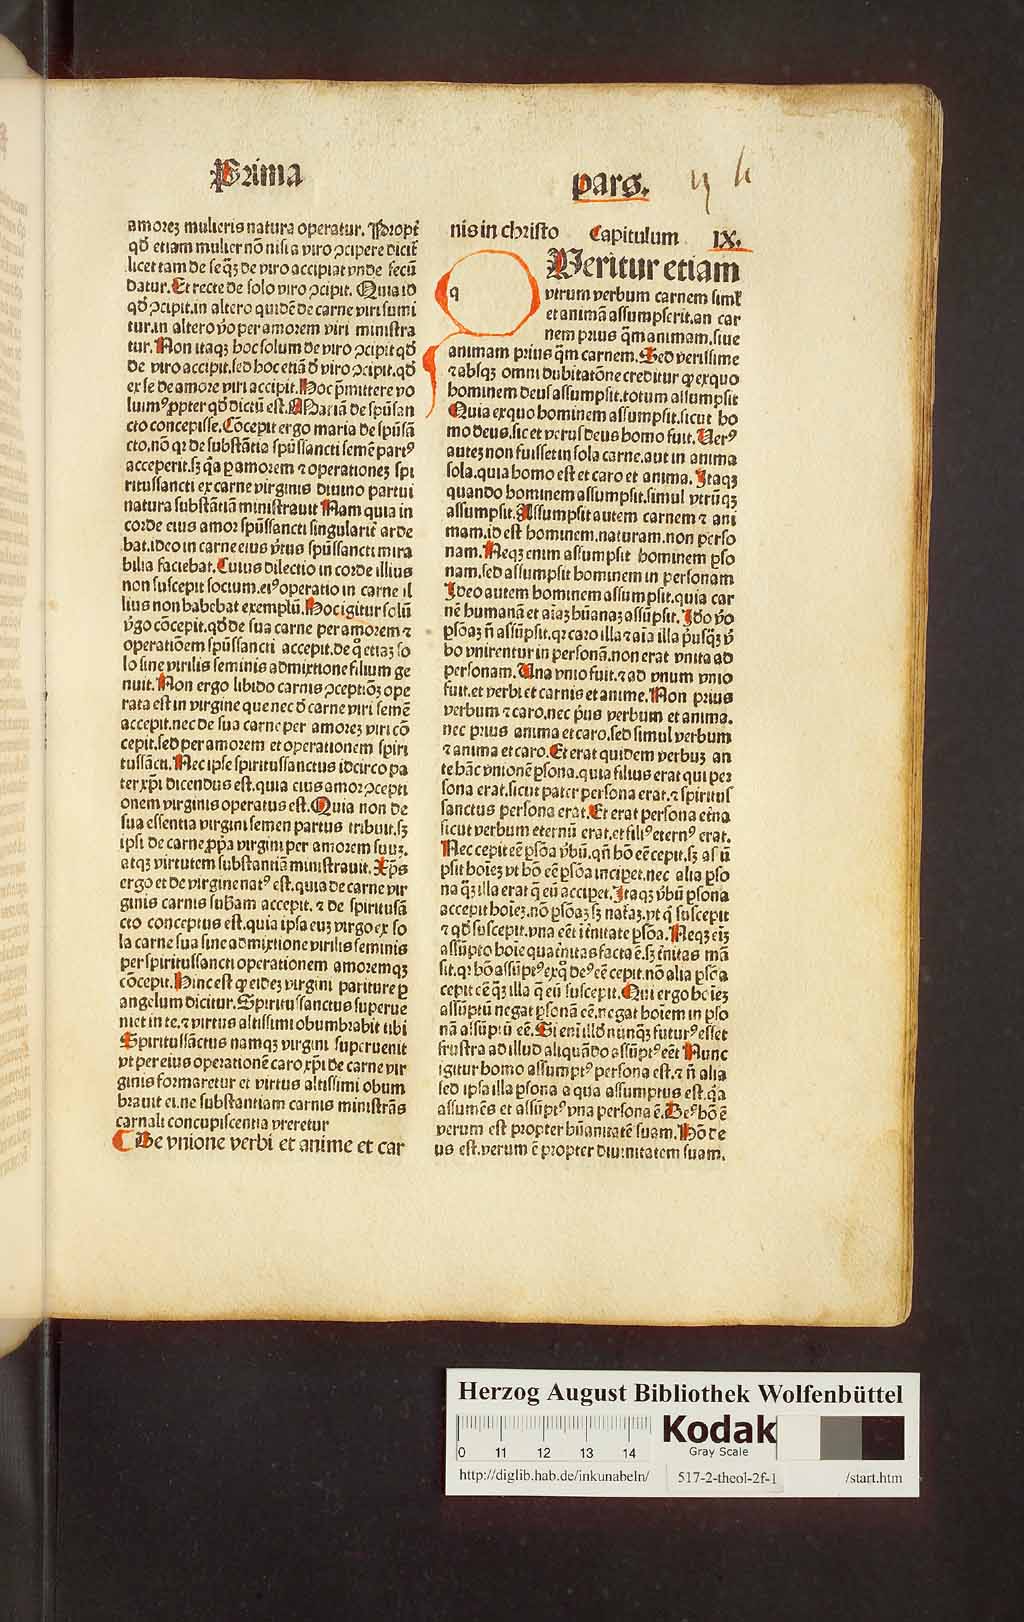 Prima
pars.
amoreꝫ mulieris natura operatur. Propt̄
qđ etiam mulier nō nisi a viro ꝯcipere dicit̄
licet tam de se qꝫ de viro accipiat vnde fecū
datur. Et recte de solo viro ꝯcipit. Quia id
qđ ꝯcipit. in altero quidē de carne viri sumi
tur. in altero v̄o per amorem viri ministra
tur. Non itaqꝫ hoc solum de viro ꝯcipit qđ
de viro accipit. sed hoc etiā đ viro ꝯcipit. qđ
ex se de amore viri accipit. Hoc p̄mittere vo
luimꝰ ꝓpter qđ dictū est. Mariā de spūsan
cto concepisse. Cōcepit ergo maria de spūsā
cto. nō qꝛ de substātia spūssancti semē partꝰ
acceperit. sꝫ q̄a ꝑ amorem ⁊ operationeꝫ spi
ritussancti ex carne virginis diuino partui
natura substātiā ministrauit Nam quia in
corde eius amor spūssancti singularit̄ arde
bat. ideo in carne eius v̄tus spūssancti mira
bilia faciebat. Cuius dilectio in corde illius
non suscepit socium. eiꝰ operatio in carne il
lius non habebat exemplū. Hoc igitur solū
v̄go cōcepit. qđ de sua carne per amorem ⁊
operatiōem spūssancti accepit. de q̊ etiaꝫ so
lo sine virilis seminis admixtione filium ge
nuit. Non ergo libido carnis ꝯceptiōꝫ ope
rata est in virgine que nec đ carne viri semē
accepit. nec de sua carne per amoreꝫ viri cō
cepit. sed per amorem et operationem spiri
tussācti. Nec ipse spiritussanctus idcirco pa
ter xp̄i dicendus est. quia eius amor ꝯcepti
onem virginis operatus est. Quia non de
sua essentia virgini semen partus tribuit. sꝫ
ipsi de carne ꝓpͥa virgini per amorem suuꝫ.
atqꝫ virtutem substantiā ministrauit. Xp̄s
ergo et de virgine natꝰ est. quia de carne vir
ginis carnis subam accepit. ⁊ de spiritusā
cto conceptus est. quia ipsa euꝫ virgo ex so
la carne sua sine admixtione virilis seminis
per spiritussancti operationem amoremqꝫ
cōcepit. Hinc est ꝙ eideꝫ virgini pariture ꝑ
angelum dicitur. Spiritussanctus superue
niet in te. ⁊ virtus altissimi obumbrabit tibi
Spiritussāctus namqꝫ virgini superuenit
vt per eius operationē caro xp̄i de carne vir
ginis formaretur et virtus altissimi obum
brauit ei. ne substantiam carnis ministrās
carnali concupiscentia vreretur
De vnione verbi et anime et car
nis in christo Capitulum IX.
q
Veritur etiam
vtrum verbum carnem siml̄
et animā assumpserit. an car
nem prius q̄m animam. siue
animam prius q̄m carnem. Sed verissime
⁊ absqꝫ omni dubitatōne creditur ꝙ exquo
hominem deus assumpsit. totum assumpsit
Quia exquo hominem assumpsit. sicut ho
mo deus. sic et verus deus homo fuit. Verꝰ
auteꝫ non fuisset in sola carne. aut in anima
sola. quia homo est et caro et anima. Itaqꝫ
quando hominem assumpsit. simul vtrūqꝫ
assumpsit. Assumpsit autem carnem ⁊ ani
mam. id est hominem. naturam. non perso
nam. Neqꝫ enim assumpsit hominem ꝑso
nam. sed assumpsit hominem in personam
Ideo autem hominem assumpsit. quia car
nē humanā et aīaꝫ hūanaꝫ assūpsit. Ido v̄o
ꝑsōaꝫ n̄ assūpsit. qꝛ caro illa ⁊ aīa illa p̄usqꝫ v̄
bo vnirentur in personā. non erat vnita ad
personam. Una vnio fuit. ⁊ ad vnum vnio
fuit. et verbi et carnis et anime. Non prius
verbum ⁊ caro. nec p̄us verbum et anima.
nec prius anima et caro. sed simul verbum
⁊ anima et caro. Et erat quidem verbuꝫ an
te hāc vnionē ꝑsona. quia filius erat qui per
sona erat. sicut pater persona erat. ⁊ spiritus
sanctus persona erat. Et erat persona et̄na
sicut verbum eternū erat. et filiꝰ eternꝰ erat.
Nec cepit eē ꝑsōa v̄bū. qn̄ hō eē cepit. sꝫ assū
psit hoīeꝫ vt hō eē ꝑsōa inciꝑet. nec alia ꝑso
na qꝫ illa erat q̄ eū acciꝑet. Itaqꝫ v̄bū ꝑsona
accepit hoīeꝫ. nō ꝑsōaꝫ sꝫ nat̄aꝫ. vt qͥ suscepit
⁊ qđ suscepit. vna eēt ī t̄nitate ꝑsōa. Neqꝫ eīꝫ
assūpto hoīe quat̄nitas facta ē. sꝫ t̄nitas mā
sit. qꝛ hō assūptꝰ exq̊ deꝰ eē cepit. nō alia ꝑsōa
cepit eē qꝫ illa q̄ eū suscepit. Qui ergo hoīeꝫ
assūptū negat ꝑsonā eē. negat hoīem in ꝑso
nā assūptū eē. Si eni illđ nunqꝫ futurꝰ esset
frustra ad illud aliquādo assūptꝰ eēt Nunc
igitur homo assumptꝰ persona est. ⁊ n̄ alia
sed ipsa illa ꝑsona a qua assumptus est. q̄a
assumēs et assūptꝰ vna persona ē. Deꝰ hō ē
verum est propter hūanitatē suam. Hō de
us est. verum ē propter diuinitatem suam.
Herzog August Bibliothek Wolfenbüttel
0 11 12 13 14
Kodak
Gray Scale
http://diglib.hab.de/inkunabeln/ 517-2-theol-2f-1 /start.htm